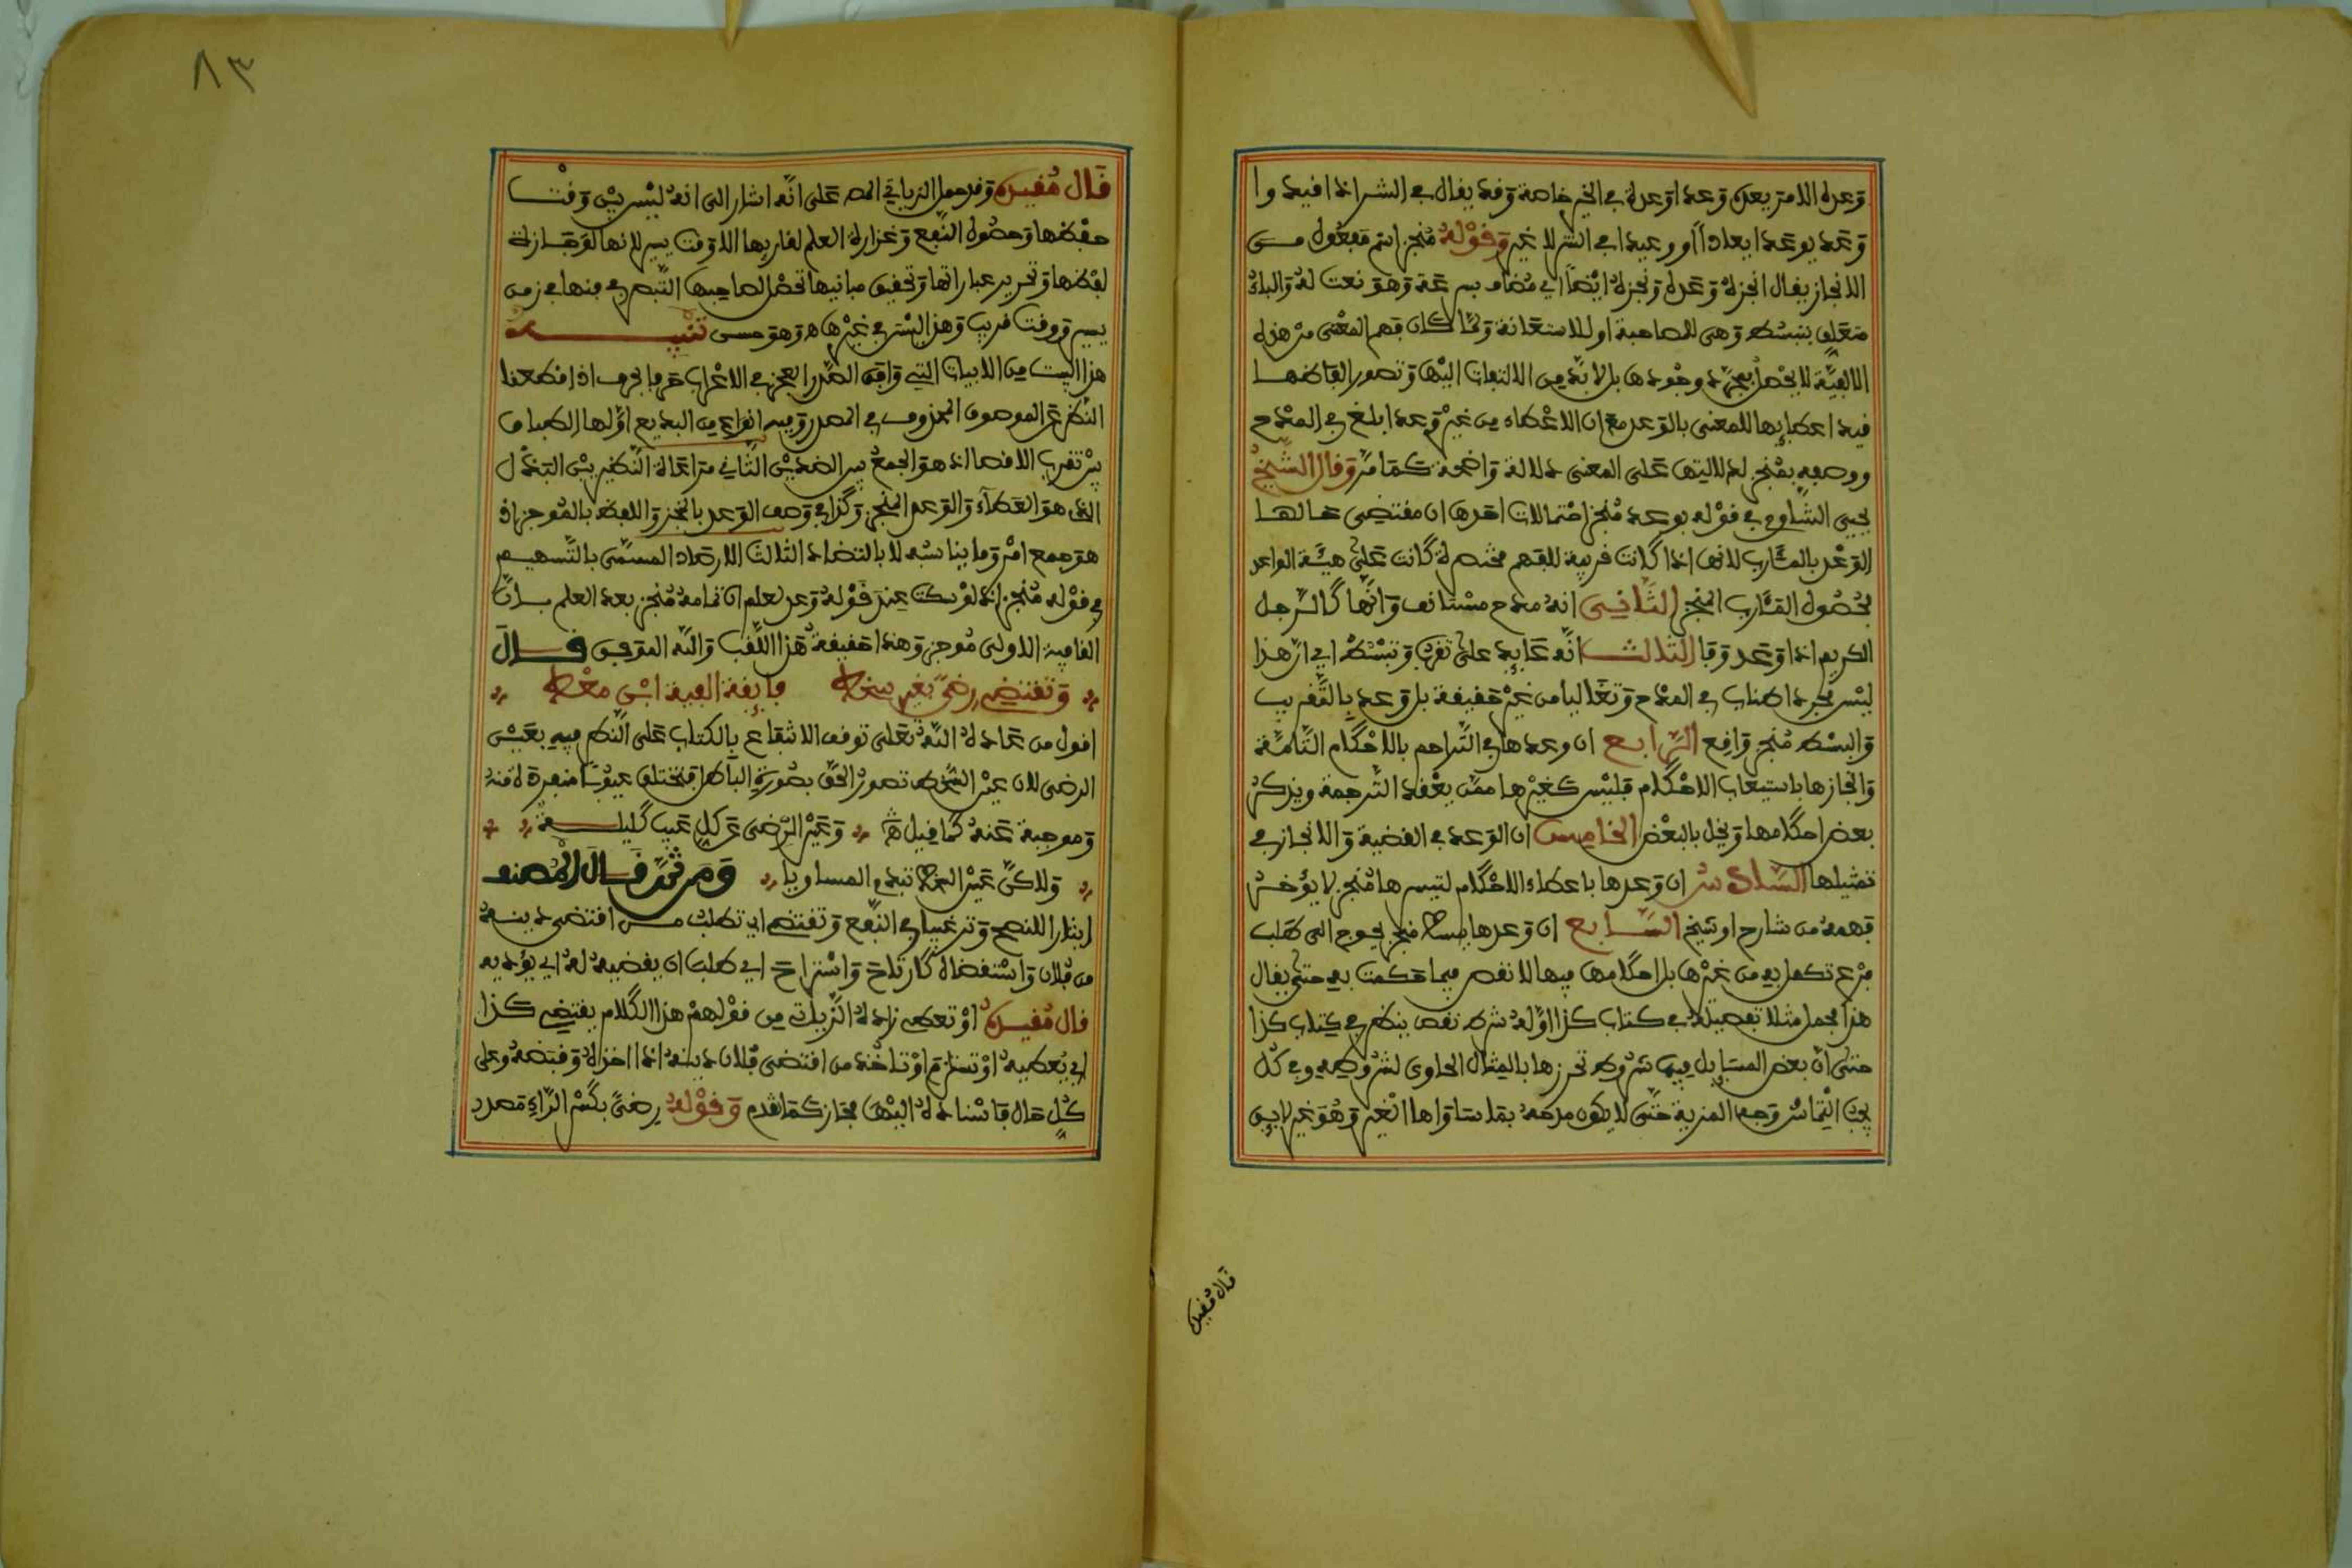 وعده الامر يعده وعدا وعدة في الخير خاصة وقد يقال في الشر اذا قيد وا
وعد يوعد ايعادا او وعيدا في الشر لا غير وقوله منجز اسم مفعول من
الانجاز يقال انجزه وعده ونجزه ايضا اي مضاف بسرعة وهو نعت له والباء
متعلق بتبسط وهي للمصاحبة او للاستعانة ولما كان فهم المعنى من هذه
الالفية لا يحصل بمجرد وجودها بل لا بد من الالتفات اليها وتصور الفاظها
قيد اعطاءها للمعنى بالوعد مع ان الاعطاء من غير وعد ابلغ في المدح
ووصفه بمنجز لدلالتها على المعنى دلالة واضحة كما مر وقال الشيخ
يحيى الشاوي في قوله بوعد منجز احتمالات احدها ان مقتضى حالها
الوعد بالمئارب لانها اذا كانت قريبة للفهم مختصرة كانت على هيئة الواعد
بحصول المئارب المنجز الثاني انه مدح مستانف وانها كالرجل
الكريم اذا وعد وفا الثالث انه عايد على تقرب وتبسط اي ان هذا
ليس مجرد اطناب في المدح وتغاليا من غير حقيقة بل وعد بالتقريب
والبسط منجز واقع الرابع ان وعدها في التراجم بالاحكام التامة
وانجازها باستيعاب الاحكام فليس كغيرها ممن يعقد الترجمة ويذكر
بعض احكامها ويخل بالبعض الخامس ان الوعد في القضية والانجاز في
تمثيلها السادس ان وعدها باعطاء الاحكام لتيسرها منجز لا يؤخر
فهمه من شارح او شيخ السابع ان وعدها ببسط منجز لا يحوج الى طلب
فرع تكمل به من غيرها بل احكامها فيها لا نقص فيما حكمت به حتى يقال
هذا مجمل مثلا تفصيله في كتاب كذا اوله شرط نقص ينظر في كتاب كذا
حتى ان بعض المسايل فيها شروط تحرزها بالمثال الحاوي لشروطه وفي كل
يجب التماس وجه المزية حتى لا يكون مدحه بما ساواها الغير وهو غير لايق
قال مقيده
٨٣
قال مقيده وقد حمل الزياتي المص على انه اشار الى انه ليس بين وقت
حفظها وحصول النفع وغزارة العلم لقاريها الا وقت يسير لانها لوجازة
لفظها وتحرير عباراتها وتحقيق مبانيها تحصل لصاحبها التبصرة منها في زمن
يسير ووقت قريب وهذا ليس في غيرها ه وهو حسن تنبيه
هذا البيت من الابيات التي وافق الصدر العجز في الاعراب حرفا بحرف اذا قطعنا
النظر عن الموصوف المحذوف في المصدر وفيه انواع من البديع اولها الطباق
بين تقرب الاقصى اذ هو الجمع بين الضدين الثاني مراعاة النظير بين التبذل
الذي هو العطاء والوعد المنجز وكذا في وصف الوعد بالنجز واللفظ بالموجز اذ
هو جمع امر وما يناسبه لا بالتضاد الثالث الارصاد المسمى بالتسهيم
في قوله منجز اذ لو سكت عند قوله وعد لعلم ان تمامه منجز بعد العلم بان
القافية الاولى موجز وهذا حقيقة هذا اللقب والله الموفق قال
وتقتضي رضى بغير سخط فايقة الفية ابن معط
اقول من عادة الله تعلى توقف الانتفاع بالكتاب على النظر فيه بعين
الرضى لان عين السخط تصور الحق بصورة الباطل فتختلق عيوبا منفرة منه
وموجبة عنه كما قيل وعين الرضى عن كل عيب كليلة
ولاكن عين السخط تبدي المساويا ومن ثم قال المصنف
ايثارا للنصح وترغيبا في النفع وتقتضي اي تطلب من اقتضى دينه
من فلان واستقضاه كارتاح واستراح اي طلب ان يقضيه له اي يؤديه
قال مقيده او تعطي زاده الزياتي من قولهم هذا الكلام يقتضي كذا
اي يعطيه او تستلزم او تاخذ من اقتضى فلان دينه اذا اخذه وقبضه وعلى
كل حال فاسناده اليها مجاز كما تقدم وقوله رضى بكسر الراء مصدر